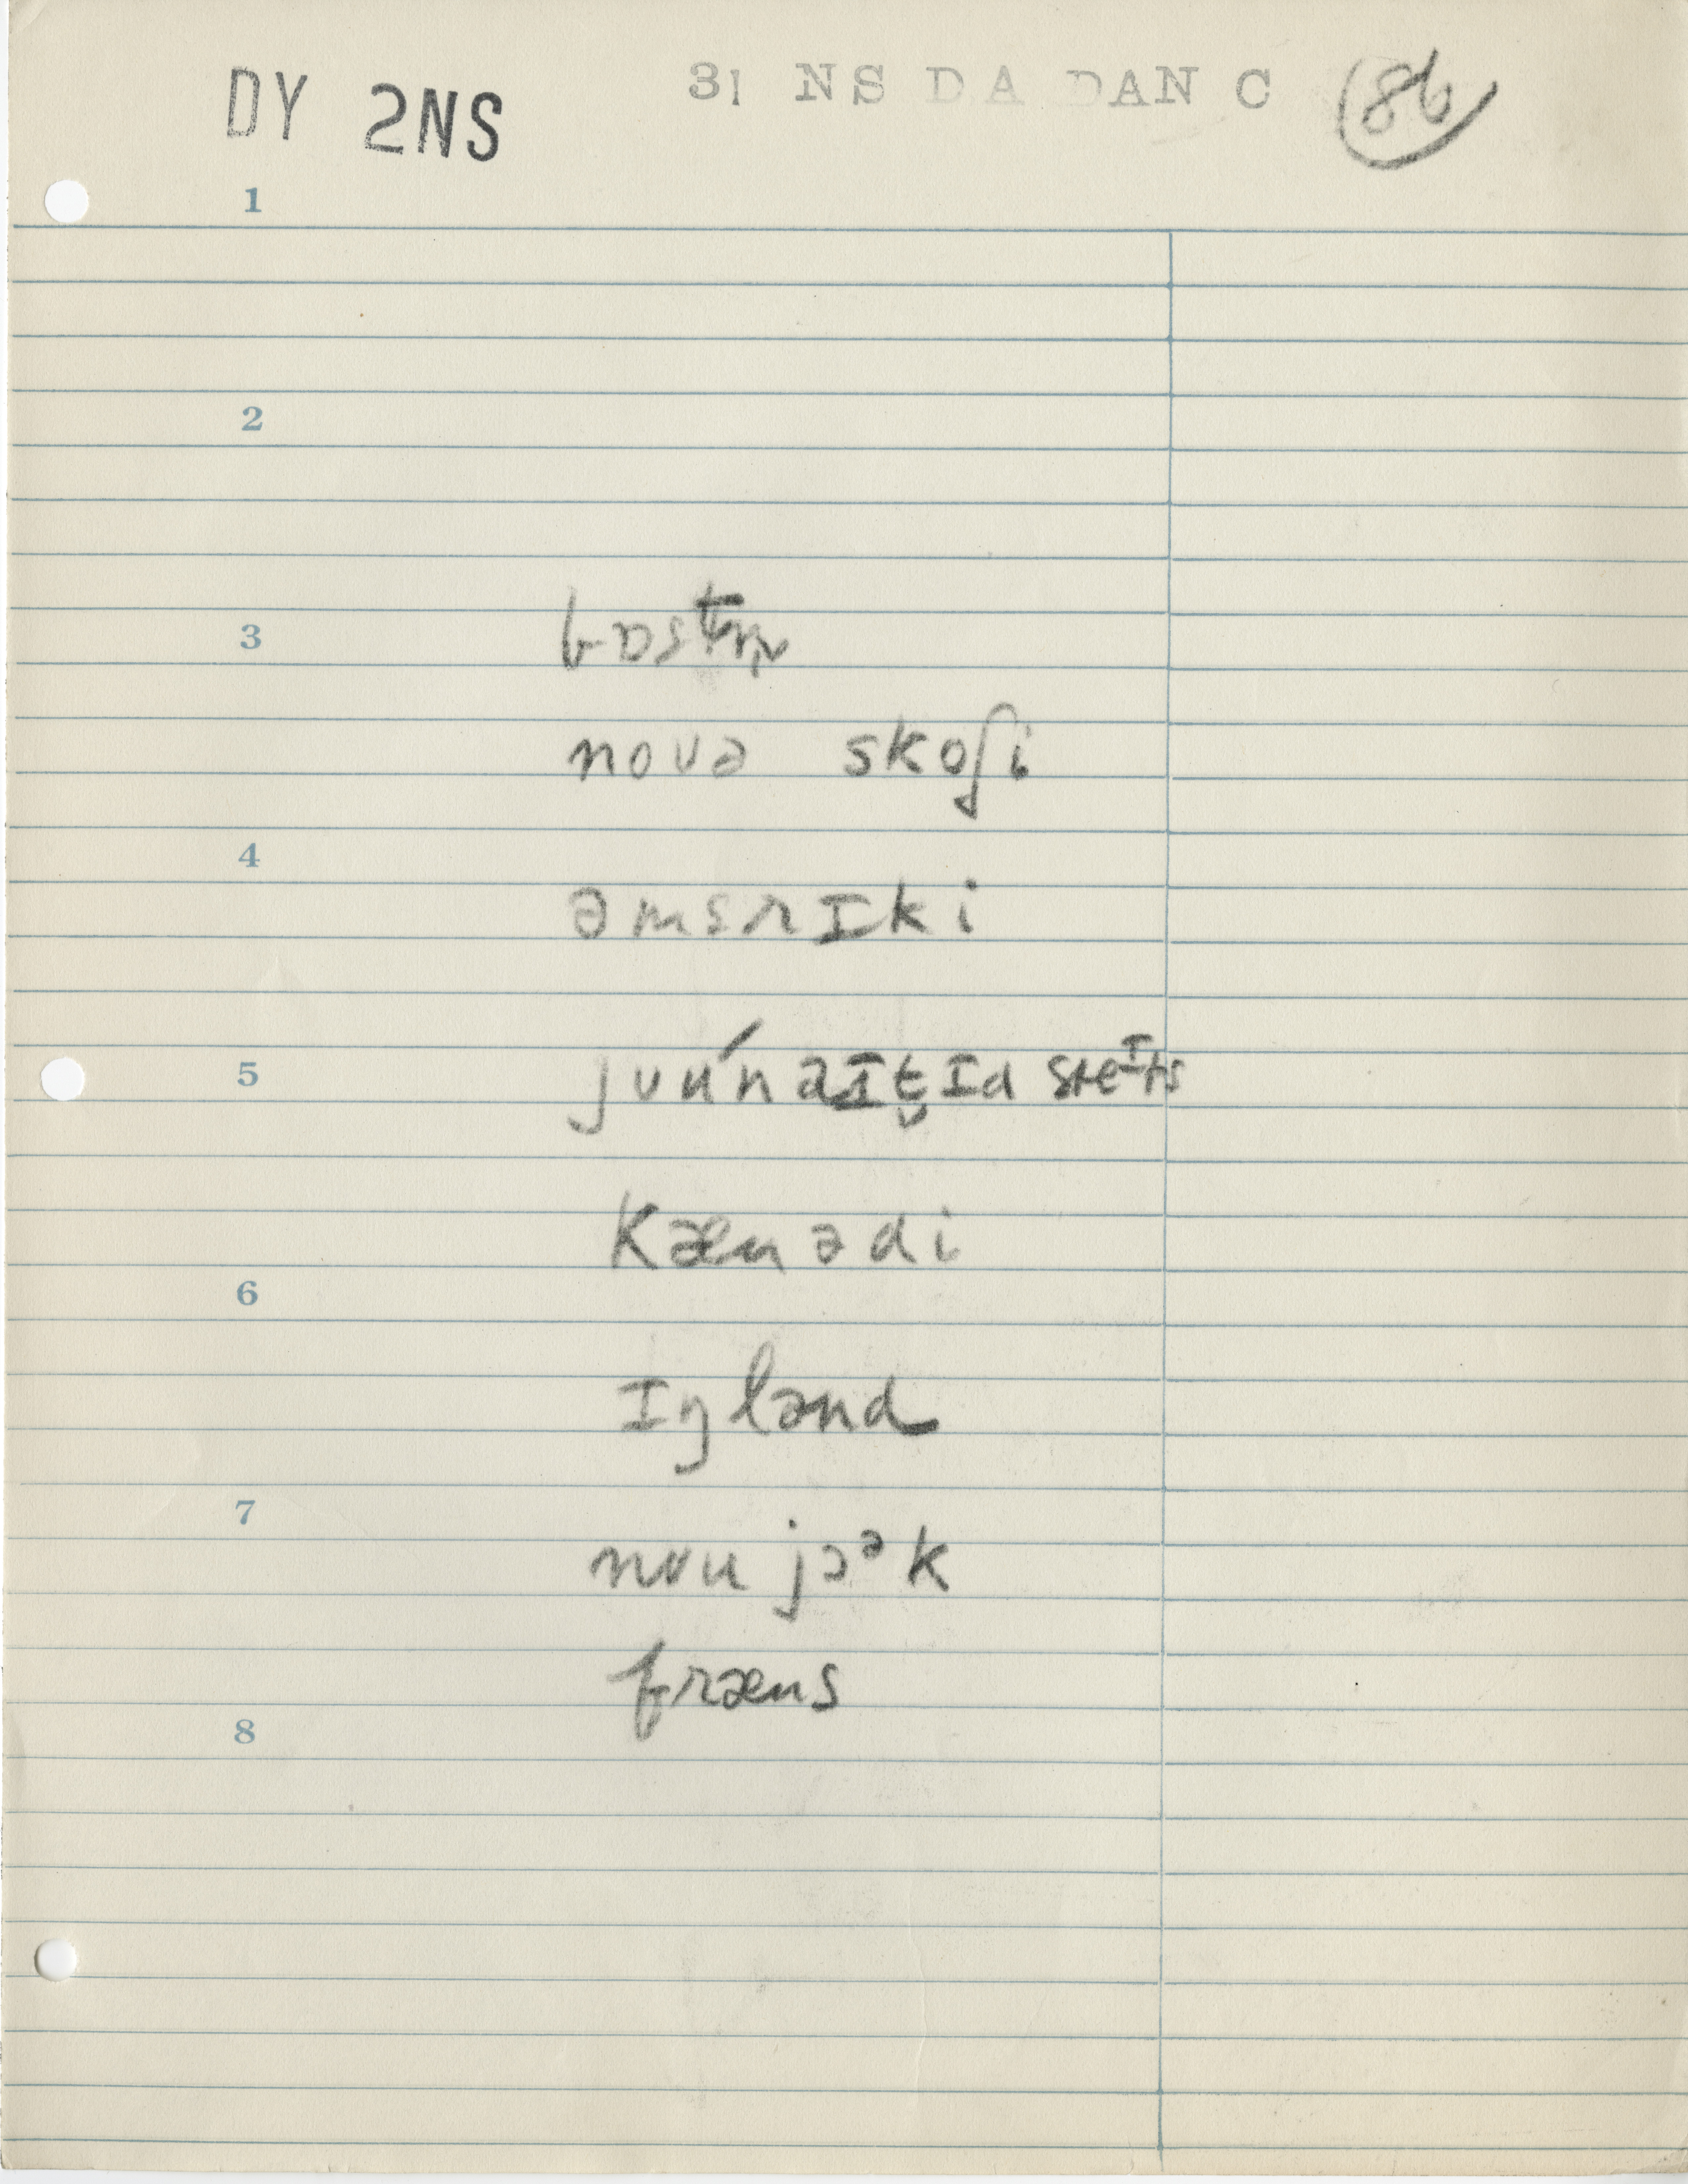 DY 2NS 31 NS DA DAN C 86
1
2
3 bɒstn̩
novə skoʃi
4
əmɛrɪki
5 jʊúnaɪt̬ɪd steɪts
kænədi
6
ɪŋlənd
7
nʊu jɔək
fræns
8